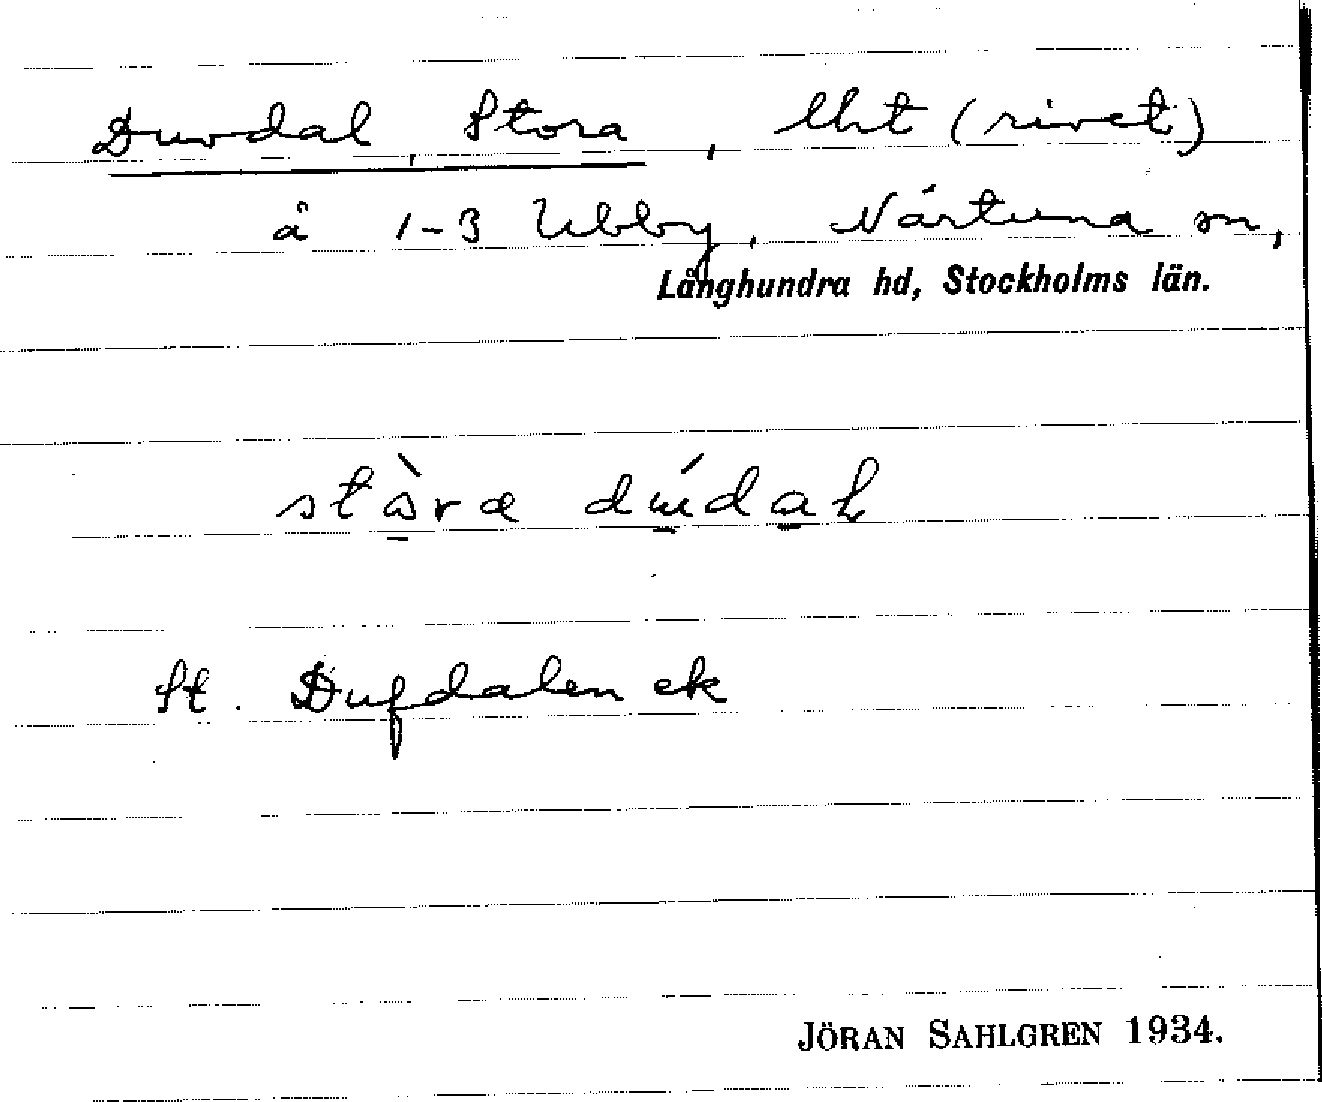 Duvdal, Stora, lht (rivet)
å 1-3 Ubby, Närtuna sn,
Långhundra hd, Stockholms län.
stɷ̀ra dɯ́dal
St. Dufdalen ek
JÖRAN SAHLGREN 1934.